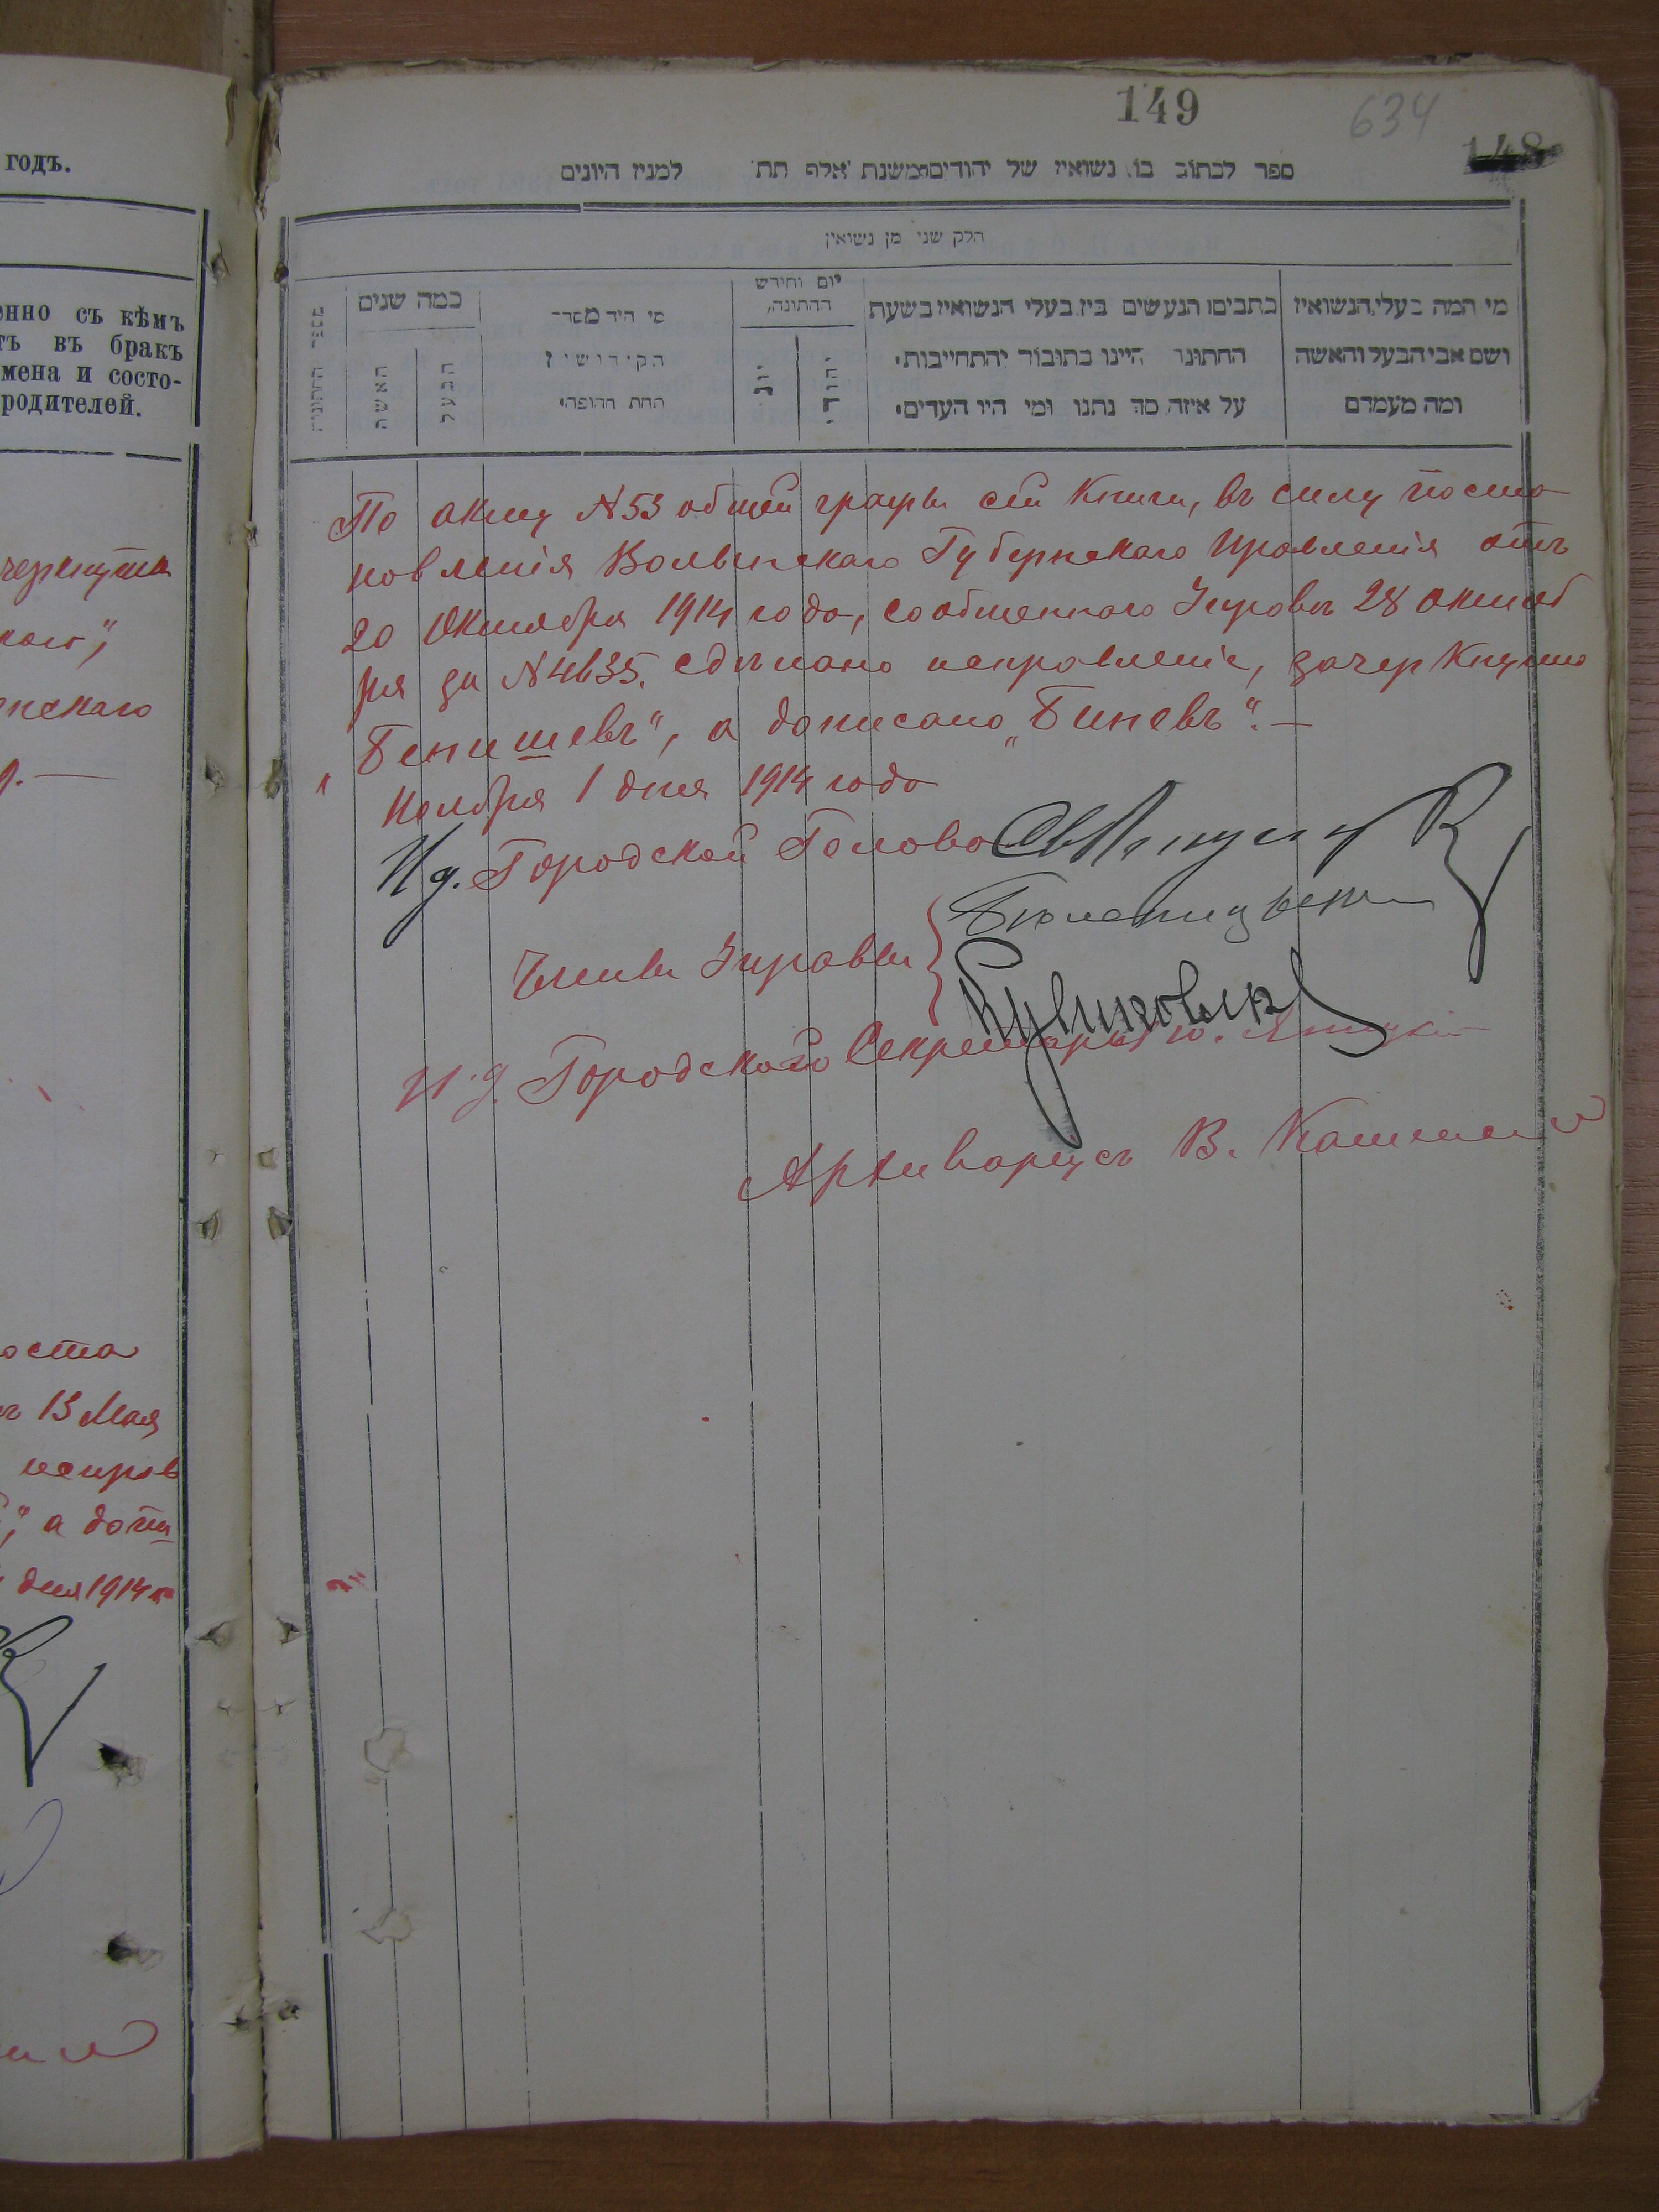 годъ.
енно съ кѣмъ
тъ въ бракъ
мена и состо-
родителей.
черкнута
нскаго
оста
13 Мая
исправ
а допи
дня 1914 г
149
634
148
ספר לכתוב בו נשואין של יהודים משנת אלף תת למנין היונים
חלק שני מן נשואין
מי המה בעלי הנשואין
ושם אבי הבעל והאשה
ומה מעמדם
כתבים הנעשים בין בעלי הנשואין בשעת
החתונה היינו כתובור והתחייבות
על איזה סך נתנו ומי היו העדים
יום וחודש
החתונה
יהודי
יוני
מי היה מסדר
הקידושין
תחת החופה
כמה שנים
הבעל
האשה
מספר החתונות
По акту №53 общей графы сей Книги, въ силу поста
новленія Волынскаго Губернскаго Правленія отъ
20 Октября 1914 года, сообщеннаго Управѣ 28 октяб
ря за №4635. сдѣлано исправленіе, зачеркнуто
"Бенишевъ", а дописано "Биневъ". —
Ноября 1 дня 1914 года
И д. Городской Голова
Члены Управы
И. д. Городского Секретаря
Архиваріусъ В.